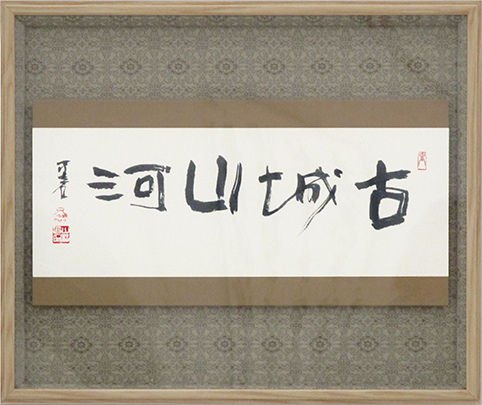 古城山河